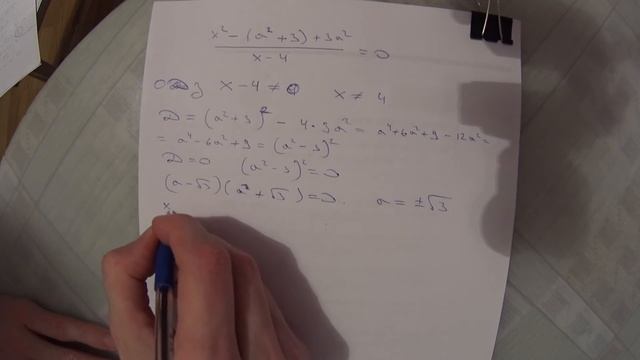 x² - (a² + 3) + 3a²
x - 4 = 0
ОДЗ x - 4 ≠ 0 x ≠ 4
D = (a² + 3)² - 4 · 3a² = a⁴ + 6a² + 9 - 12a² =
= a⁴ - 6a² + 9 = (a² - 3)²
D = 0 (a² - 3)² = 0
(a - √3)(a + √3) = 0. a = ±√3
x